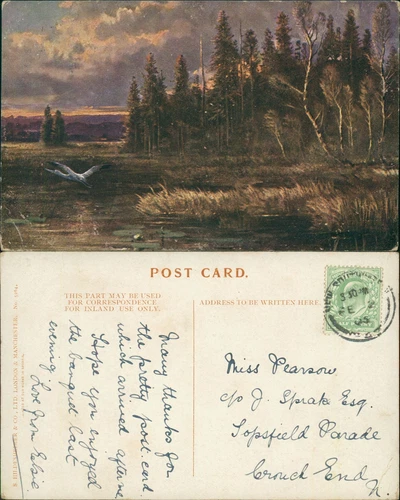 POST CARD.
THIS PART MAY BE USED
FOR CORRESPONDENCE
FOR INLAND USE ONLY.
ADDRESS TO BE WRITTEN HERE.
Many thanks for
the pretty post card
which arrived after me
Hope you enjoyed
the banquet last
evening Love from Elsie
Miss Pearson
c/o J. Sprake Esq.
Topsfield Parade
Crouch End
N.